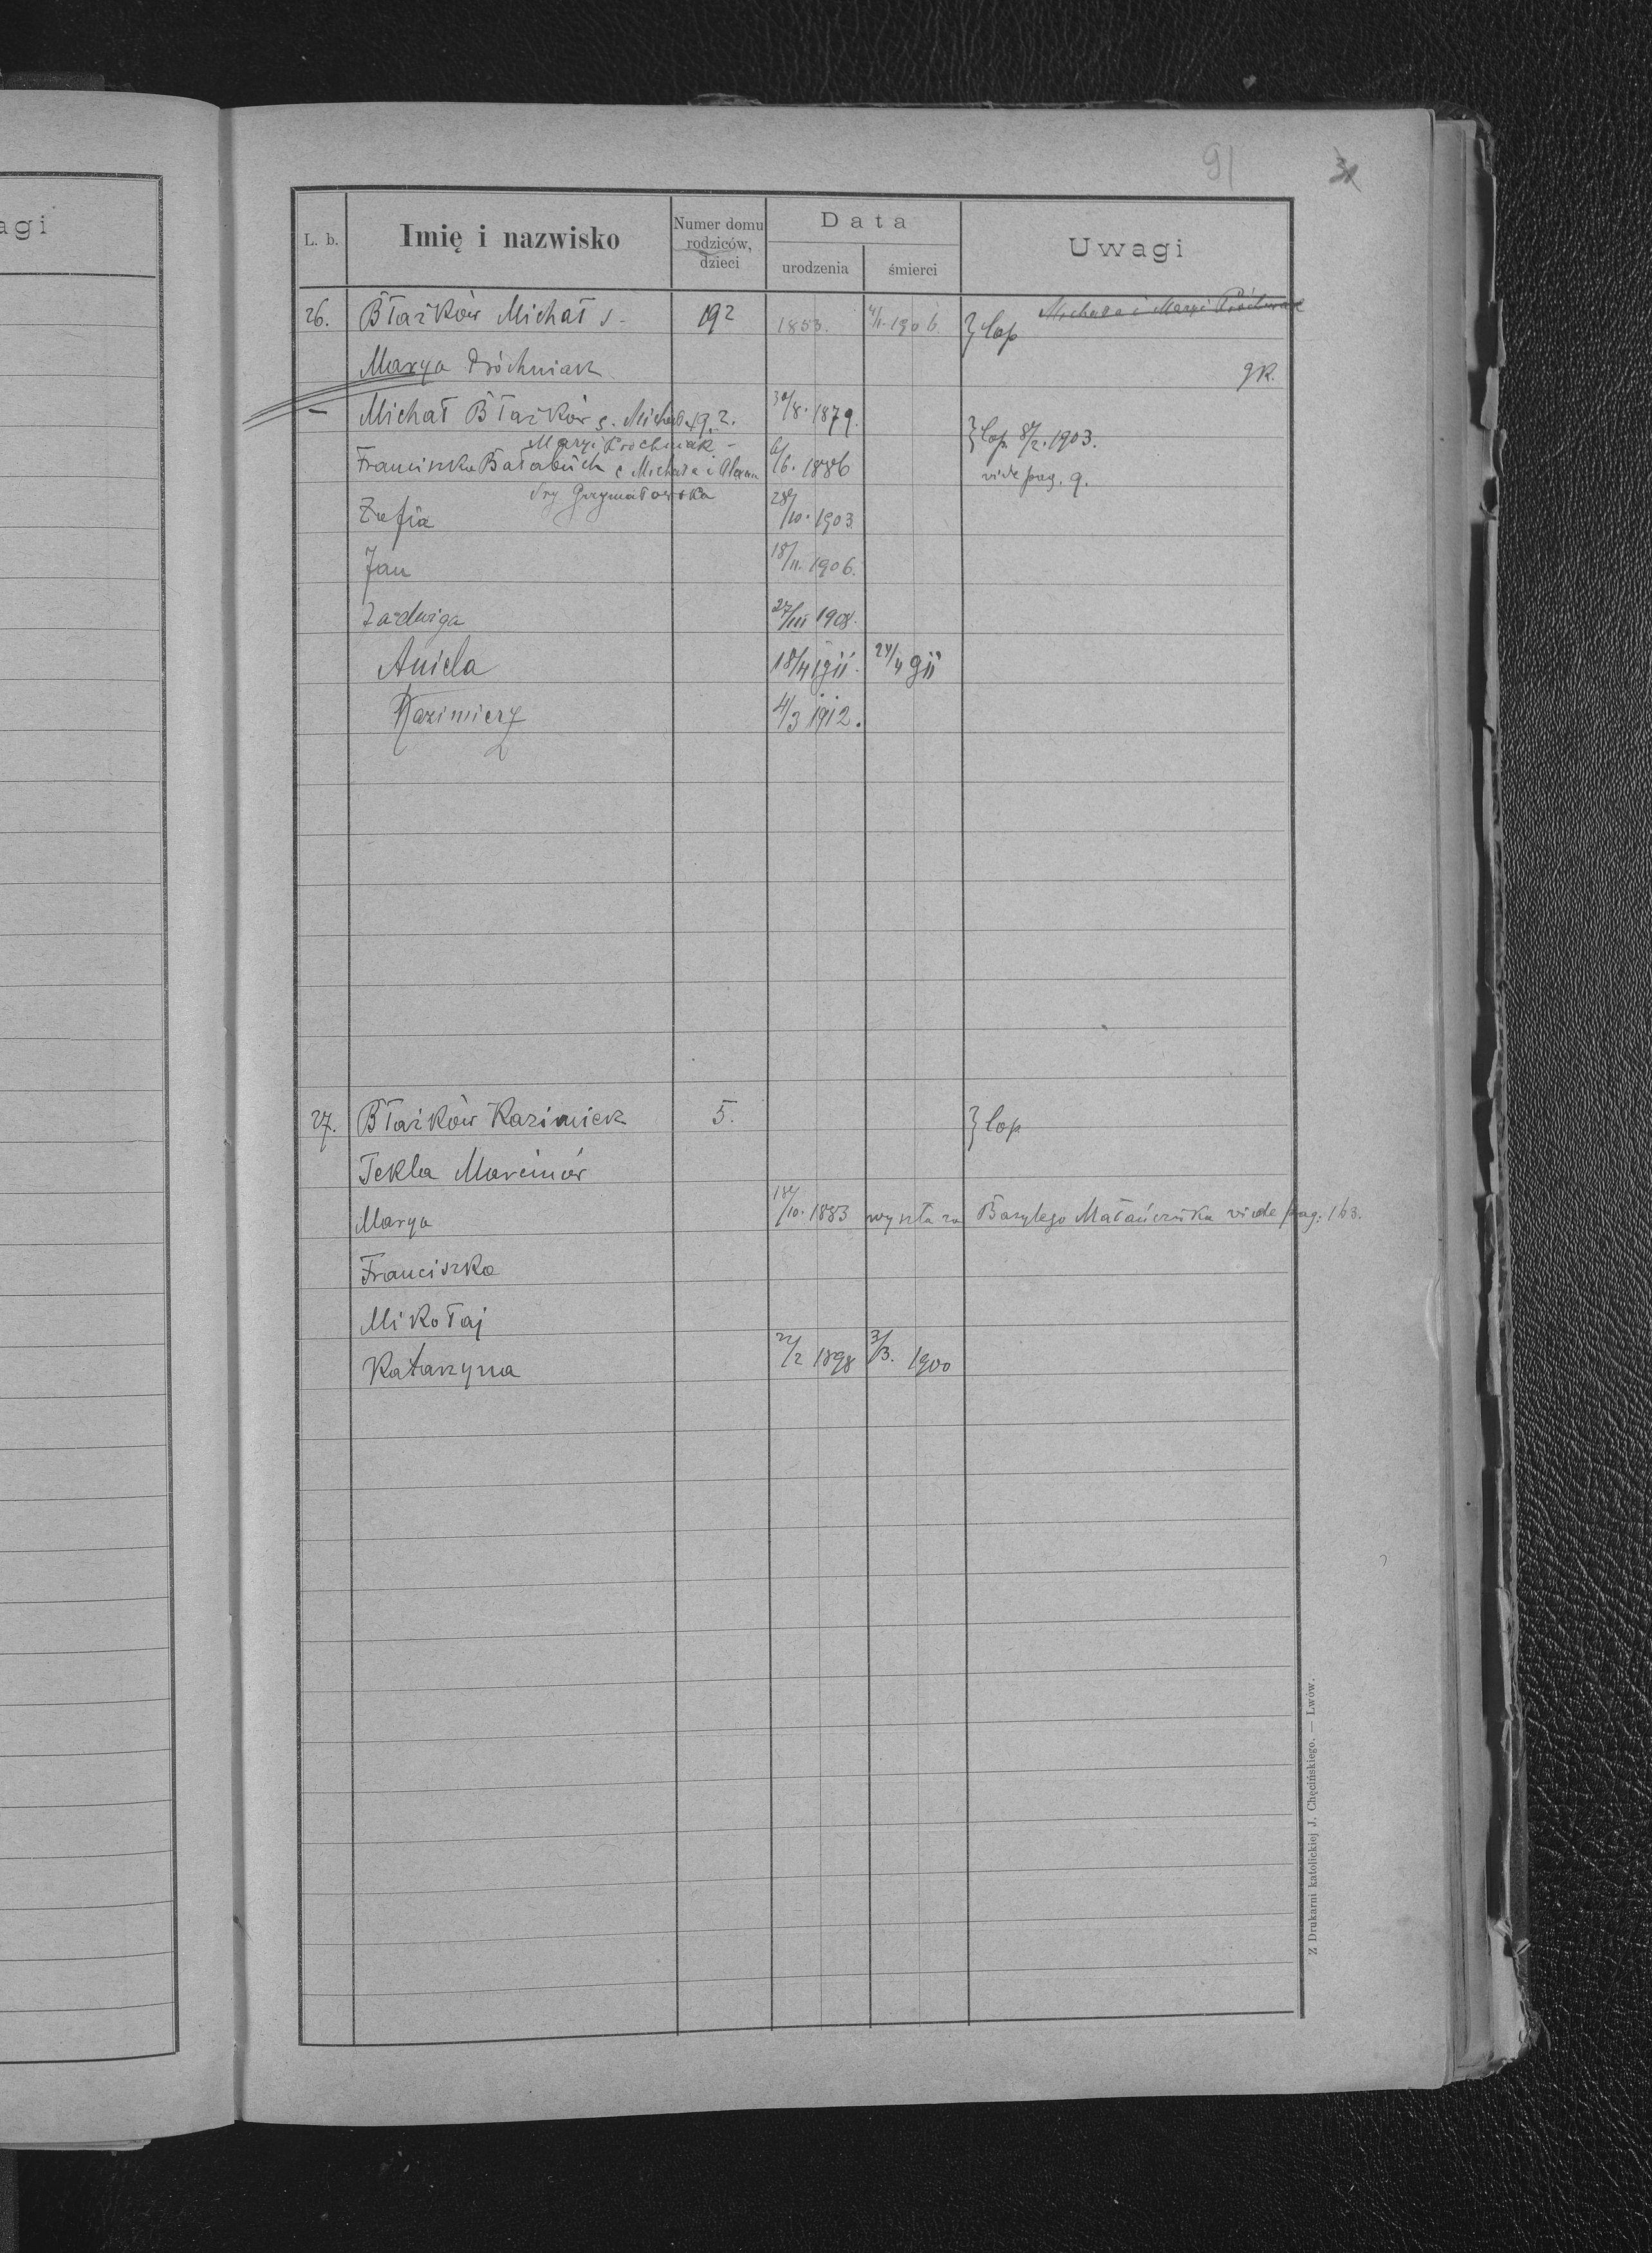 agi
91
31
L. b.
Imię i nazwisko
Numer domu rodziców, dzieci
Data
urodzenia
śmierci
Uwagi
26. Błażków Michał s. 192 1853. 4/II. 1906. } cop Michała i Maryi Próchniak
Marya Próchniak gk.
– Michał Błażków s. Michała 192. 30/8. 1879. } cop. 8/2. 1903.
Maryi Prochniak –
Franciszka Bałabuch c Michała i Alexan 6/6. 1886 vide pag. 9.
dry Grzymałowska
Zofia 28/10. 1903.
Jan 18/11. 1906.
Jadwiga 27/III 1908.
Aniela 18/4 1911. 24/4 911
Kazimierz 4/3 1912.
27. Błażków Kazimierz 5. } cop
Tekla Marcinów
Marya 18/10. 1883 wyszła za Bazylego Małańczuka vide pag. 163.
Franciszka
Mikołaj
Katarzyna 22/2 1898 3/3. 1900
Z Drukarni katolickiej J. Chęcińskiego. — Lwów.